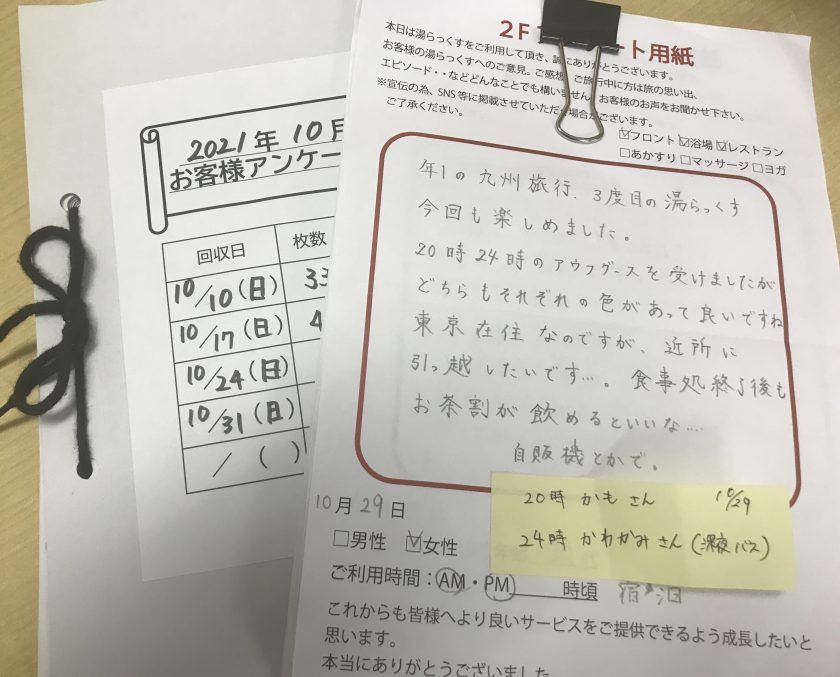 2021年 10月
お客様アンケー
回収日
枚数
10/10(日)
33
10/17(日)
4
10/24(日)
10/31(日)
/ ( )
2F ート用紙
本日は湯らっくすをご利用して頂き、誠にありがとうございます。
お客様の湯らっくすへのご意見。ご感想。ご旅行中に方は旅の思い出、
エピソード・・などどんなことでも構いません。お客様のお声をお聞かせ下さい。
※宣伝の為、SNS等に掲載させていただく場合がございます。
ご了承ください。
☑フロント☑浴場☑レストラン
□あかすり□マッサージ□ヨガ
年1の九州旅行、3度目の湯らっくす
今回も楽しめました。
20時 24時のアウフグースを受けましたが
どちらもそれぞれの色があって良いですね
東京在住なのですが、近所に
引っ越ししたいです…。食事処終了後も
お茶割が飲めるといいな….
自販機とかで。
20時 かもさん 10/29
24時 かわかみさん(深夜バス)
10月29日
□男性 ☑女性
ご利用時間:AM・PM 時頃 宿泊
これからも皆様へより良いサービスをご提供できるよう成長したいと
思います。
本当にありがとうございました